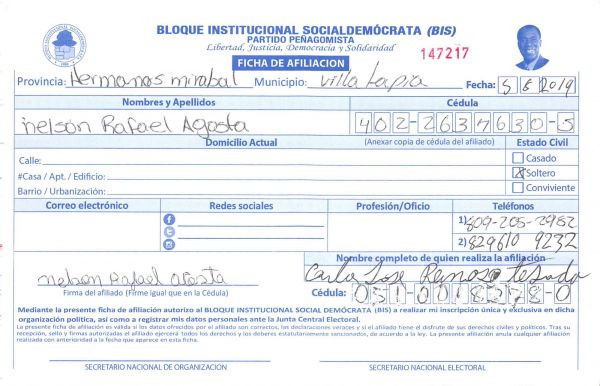 BLOQUE INSTITUCIONAL SOCIALDEMÓCRATA (BIS)
PARTIDO PEÑAGOMISTA
Libertad, Justicia, Democracia y Solidaridad
147217
FICHA DE AFILIACION
Provincia: Hermanas mirabal Municipio: Villa tapia Fecha: 5 8 2019
Nombres y Apellidos Cédula
nelson Rafael Agosta 402-2637630-5
Domicilio Actual (Anexar copia de cédula del afiliado) Estado Civil
Calle: Casado
#Casa / Apt. / Edificio: X Soltero
Barrio / Urbanización: Conviviente
Correo electrónico Redes sociales Profesión/Oficio Teléfonos
1) 809-205-2982
2) 829610 9232
Nombre completo de quien realiza la afiliación
nelson Rafael acosta Carlo Jose
Firma del afiliado (Firme igual que en la Cédula) Cédula: 051-0018278-0
Mediante la presente ficha de afiliación autorizo al BLOQUE INSTITUCIONAL SOCIAL DEMÓCRATA (BIS) a realizar mi inscripción única y exclusiva en dicha
organización política, así como a registrar mis datos personales ante la Junta Central Electoral.
La presente ficha de afiliación es válida si los datos ofrecidos por el afiliado son correctos, las declaraciones veraces y si el afiliado tiene el disfrute de sus derechos civiles y políticos. Tras su
recepción, sello y firmas autorizadas el afiliado ejercerá todos los derechos y los deberes estatutariamente sancionados, de acuerdo a la ley. La presente afiliación anula cualquier afiliación
realizada con anterioridad a la fecha que aparece en esta ficha.
SECRETARIO NACIONAL DE ORGANIZACIÓN SECRETARIO NACIONAL ELECTORAL